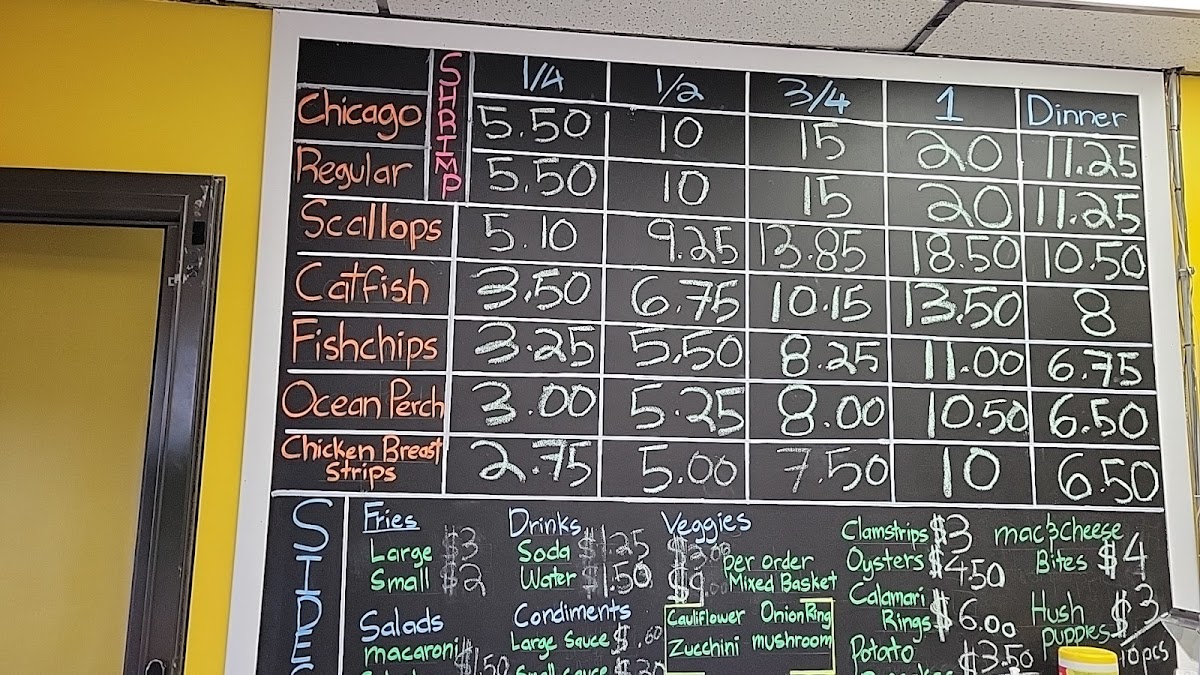 SHRIMP 1/4 1/2 3/4 1 Dinner
Chicago 5.50 10 15 20 11.25
Regular 5.50 10 15 20 11.25
Scallops 5.10 9.25 13.85 18.50 10.50
Catfish 3.50 6.75 10.15 13.50 8
Fishchips 3.25 5.50 8.25 11.00 6.75
Ocean Perch 3.00 5.25 8.00 10.50 6.50
Chicken Breast Strips 2.75 5.00 7.50 10 6.50
SIDES
Fries
Large $3
Small $2
Salads
macaroni $1.50
Drinks
Soda $1.25
Water $1.50
Condiments
Large Sauce $.60
Small sauce
Veggies
$3.00 per order
$9. Mixed Basket
Cauliflower Onion Ring
Zucchini mushroom
Clamstrips $3
Oysters $4.50
Calamari
Rings $6.00
Potato
$3.50
mac&cheese
Bites $4
Hush
puppies $3/10pcs